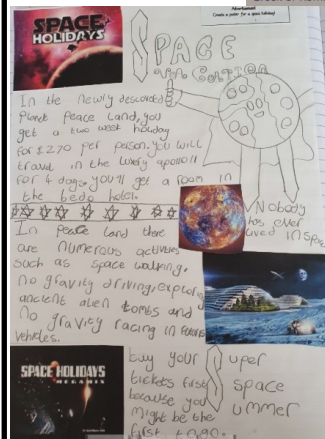 Advertisement
Create a poster for a space holiday!
SPACE
HOLIDAYS
SPACE
VACATION
In the newly descovered
Planet Peace Land, you
get a two week holiday
for £270 per person. you will
travel in the luxery apollo 11
for 4 days, you'll get a room in
the bedo hotel.
Nobody
has ever
lived in space
In peace land there
are numerous activities
such as space walking,
no gravity driving, exploring
ancient alien tombs and
no gravity racing in future
vehicles.
SPACE HOLIDAYS
MEGAMIX
buy your
tickets first
because you
might be the
first
Super
Space
Summer